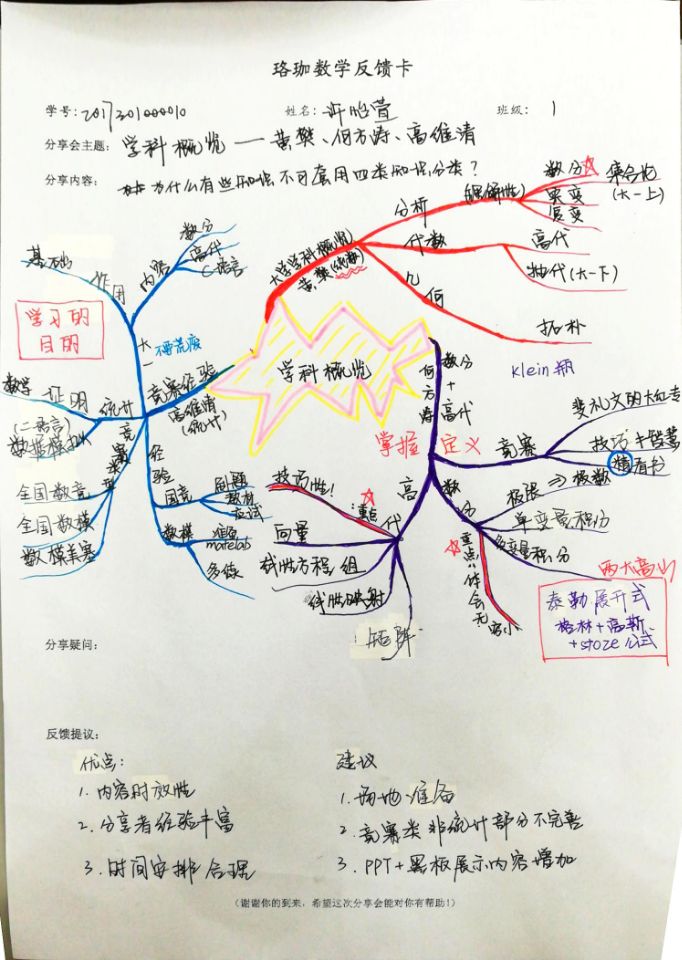 珞珈数学反馈卡
学号: 2017301000010 姓名: 许怡萱 班级: 1
分享会主题: 学科概览 — 黄樊、何方涛、高维清
分享内容: 为什么有些知识不可套用四类知识分类?
大学学科概览
黄樊(统数)
分析
(理解性)
数分
集合论
(大一上)
实变
复变
代数
高代
抽代(大一下)
几何
拓扑
klein瓶
学科概览
基础
作用
内容
数分
高代
C语言
学习的
目的
大一
不要荒废
竞赛经验
高维清
(统计)
数学
证明
(二语言)
统计
数据模拟
竞赛类型
全国数竞
全国数模
数模美赛
经验
国竞
例题
教材
应试
数模
准备
matelab
多练
何方涛
数分
+
高代
掌握 定义
竞赛
裴礼文的大红书
技巧:
精 有书
数分
极限⇒级数
单变量积分
多变量积分
重点:体会无穷小
两大高山
泰勒展开式
格林+高斯
+stoze公式
高代
重点:
技巧性!
向量
线性方程组
线性映射
矩阵
分享疑问:
反馈提议:
优点:
1. 内容时效性
2. 分享者经验丰富
3. 时间安排合理
建议
1. 场地准备
2. 竞赛类非统计部分不完善
3. PPT+黑板展示内容增加
(谢谢你的到来，希望这次分享会能对你有帮助!)